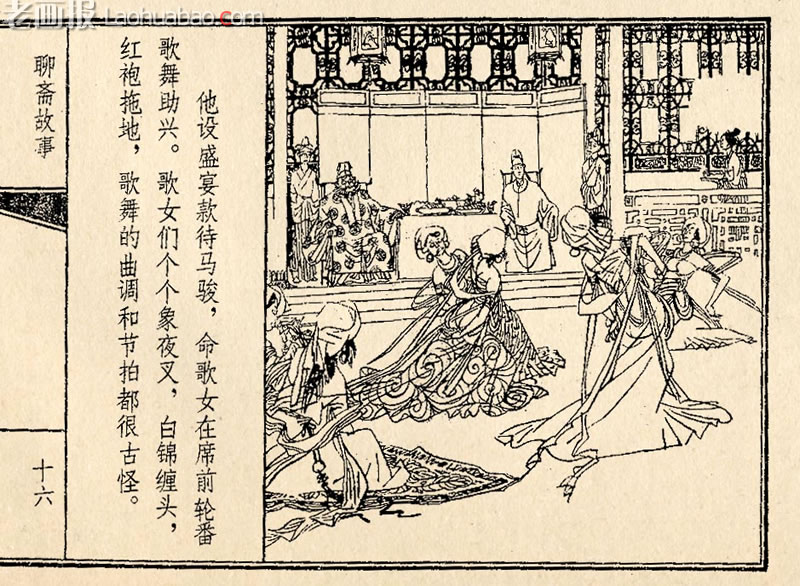 老画报 Laohuabao.com
他设盛宴款待马骏，命歌女在席前轮番
歌舞助兴。歌女们个个象夜叉，白锦缠头，
红袍拖地，歌舞的曲调和节拍都很古怪。
聊斋故事
十六